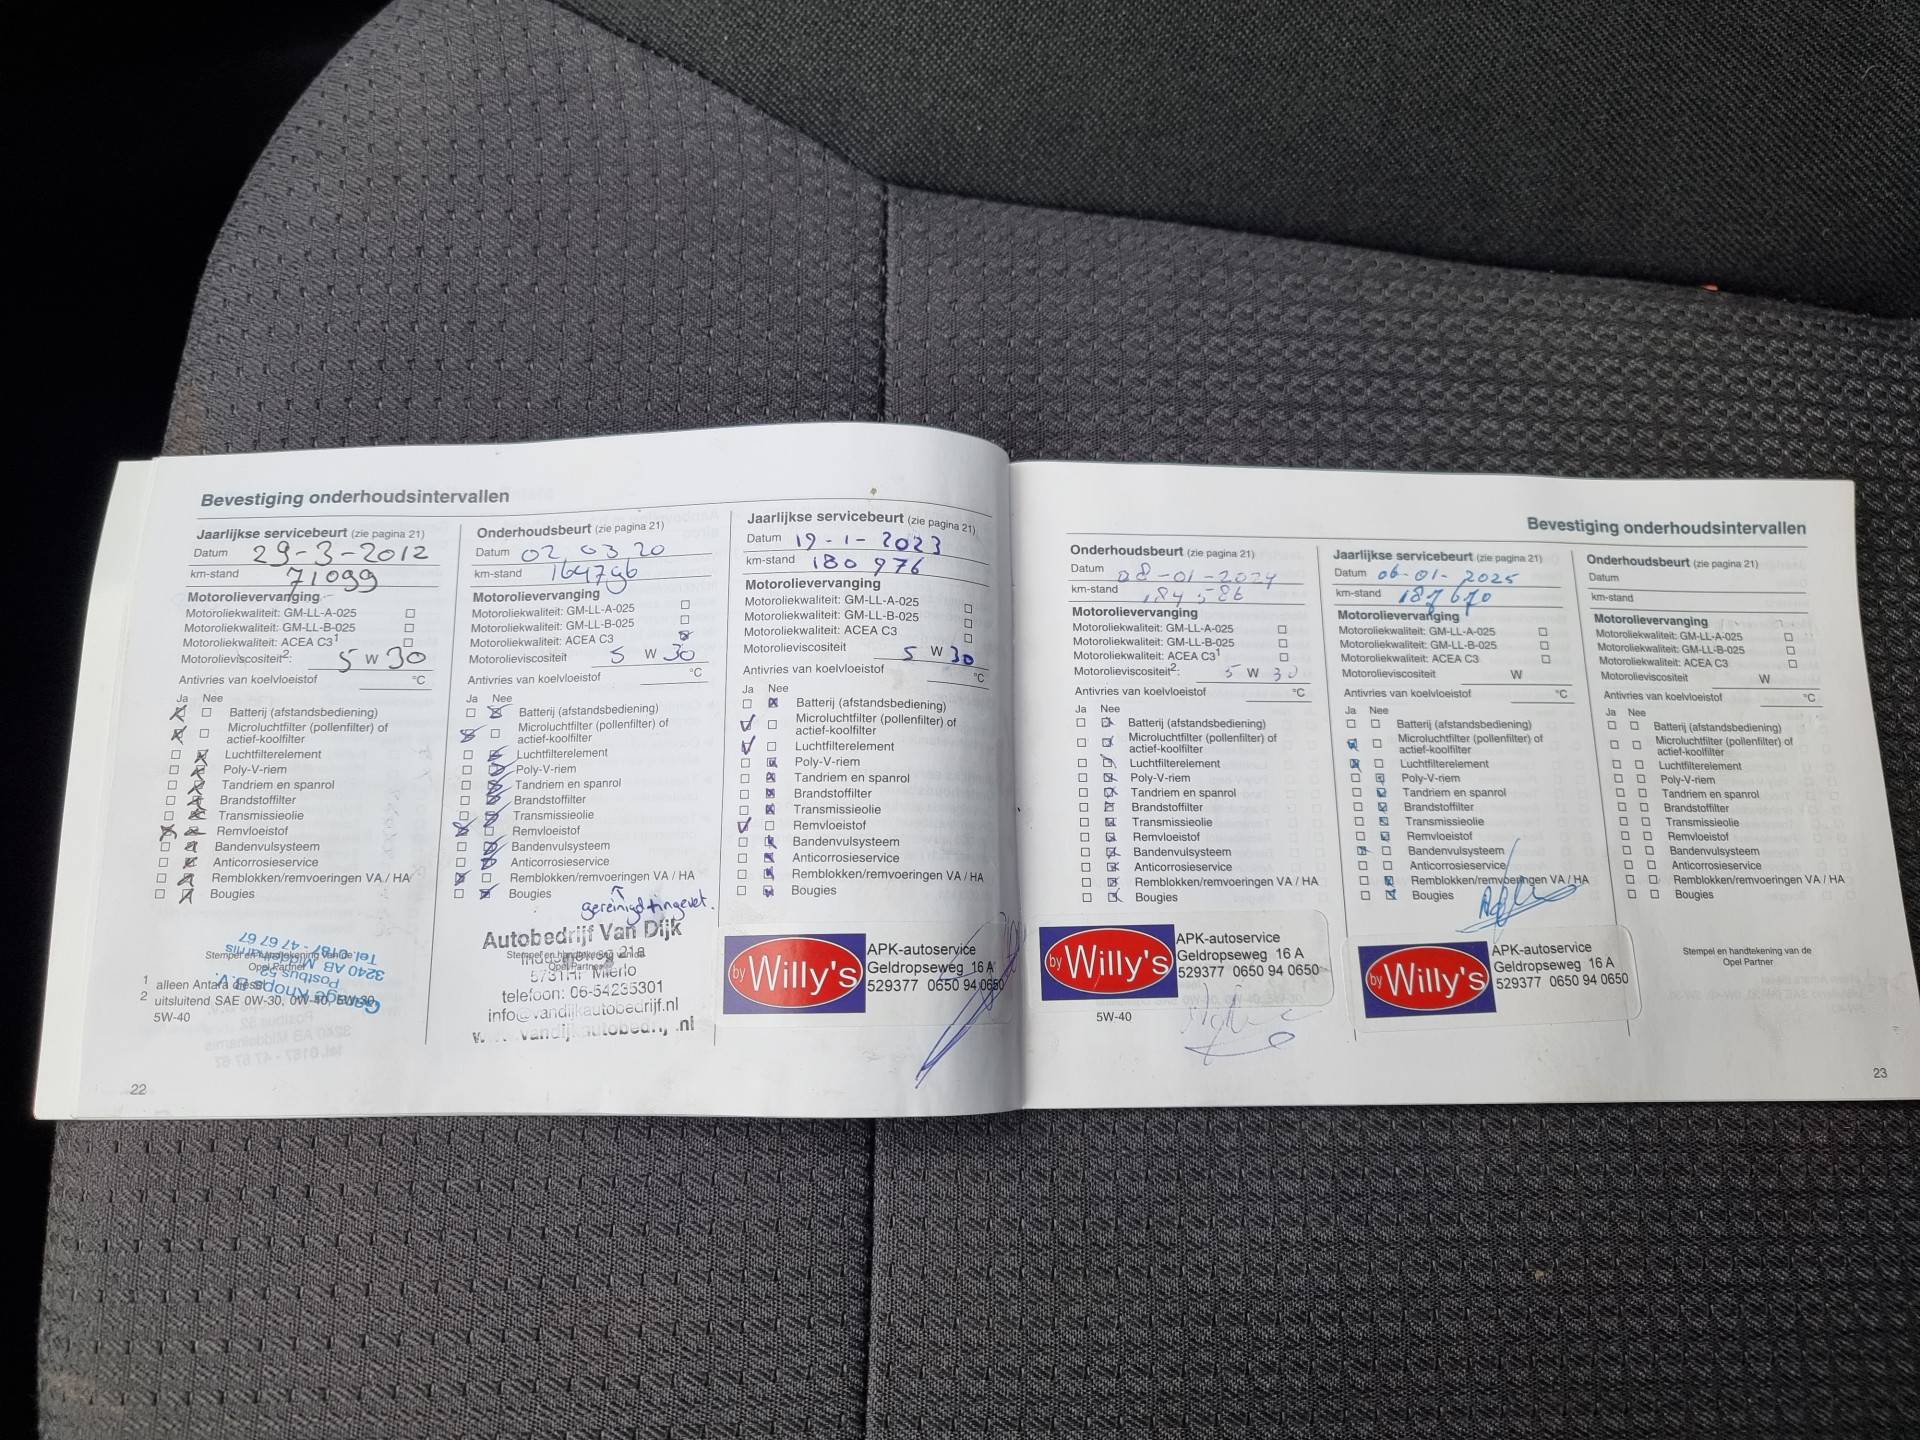 Bevestiging onderhoudsintervallen
Jaarlijkse servicebeurt (zie pagina 21)
Datum 29-3-2012
km-stand 71099
Motorolievervanging
Motoroliekwaliteit: GM-LL-A-025
Motoroliekwaliteit: GM-LL-B-025
Motoroliekwaliteit: ACEA C3¹
Motorolieviscositeit²: 5 W 30
Antivries van koelvloeistof °C
Ja Nee
Batterij (afstandsbediening)
Microluchtfilter (pollenfilter) of
actief-koolfilter
Luchtfilterelement
Poly-V-riem
Tandriem en spanrol
Brandstoffilter
Transmissieolie
Remvloeistof
Bandenvulsysteem
Anticorrosieservice
Remblokken/remvoeringen VA / HA
Bougies
Stempel en handtekening van de
Opel Partner
Garage Knöps B.V.
Postbus 52
3240 AB Middelharnis
Tel. 0187 - 47 67 67
1 alleen Antara diesel
2 uitsluitend SAE 0W-30, 0W-40, 5W-30,
5W-40
22
Onderhoudsbeurt (zie pagina 21)
Datum 02 03 20
km-stand 164796
Motorolievervanging
Motoroliekwaliteit: GM-LL-A-025
Motoroliekwaliteit: GM-LL-B-025
Motoroliekwaliteit: ACEA C3
Motorolieviscositeit 5 W 30
Antivries van koelvloeistof °C
Ja Nee
Batterij (afstandsbediening)
Microluchtfilter (pollenfilter) of
actief-koolfilter
Luchtfilterelement
Poly-V-riem
Tandriem en spanrol
Brandstoffilter
Transmissieolie
Remvloeistof
Bandenvulsysteem
Anticorrosieservice
Remblokken/remvoeringen VA / HA
Bougies
gereinigd + ingevet.
Autobedrijf Van Dijk
21a
Stempel en handtekening van de
Opel Partner
Mierlo
telefoon: 06-54235301
info@vandijkautobedrijf.nl
Jaarlijkse servicebeurt (zie pagina 21)
Datum 19-1-2023
km-stand 180976
Motorolievervanging
Motoroliekwaliteit: GM-LL-A-025
Motoroliekwaliteit: GM-LL-B-025
Motoroliekwaliteit: ACEA C3
Motorolieviscositeit 5 W 30
Antivries van koelvloeistof °C
Ja Nee
Batterij (afstandsbediening)
Microluchtfilter (pollenfilter) of
actief-koolfilter
Luchtfilterelement
Poly-V-riem
Tandriem en spanrol
Brandstoffilter
Transmissieolie
Remvloeistof
Bandenvulsysteem
Anticorrosieservice
Remblokken/remvoeringen VA / HA
Bougies
by Willy's
APK-autoservice
Geldropseweg 16 A
529377 0650 94 0650
Bevestiging onderhoudsintervallen
Onderhoudsbeurt (zie pagina 21)
Datum 08-01-2024
km-stand 184586
Motorolievervanging
Motoroliekwaliteit: GM-LL-A-025
Motoroliekwaliteit: GM-LL-B-025
Motoroliekwaliteit: ACEA C3¹
Motorolieviscositeit²: 5 W 30
Antivries van koelvloeistof °C
Ja Nee
Batterij (afstandsbediening)
Microluchtfilter (pollenfilter) of
actief-koolfilter
Luchtfilterelement
Poly-V-riem
Tandriem en spanrol
Brandstoffilter
Transmissieolie
Remvloeistof
Bandenvulsysteem
Anticorrosieservice
Remblokken/remvoeringen VA / HA
Bougies
by Willy's
APK-autoservice
Geldropseweg 16 A
529377 0650 94 0650
5W-40
Jaarlijkse servicebeurt (zie pagina 21)
Datum 06-01-2025
km-stand 187670
Motorolievervanging
Motoroliekwaliteit: GM-LL-A-025
Motoroliekwaliteit: GM-LL-B-025
Motoroliekwaliteit: ACEA C3
Motorolieviscositeit W
Antivries van koelvloeistof °C
Ja Nee
Batterij (afstandsbediening)
Microluchtfilter (pollenfilter) of
actief-koolfilter
Luchtfilterelement
Poly-V-riem
Tandriem en spanrol
Brandstoffilter
Transmissieolie
Remvloeistof
Bandenvulsysteem
Anticorrosieservice
Remblokken/remvoeringen VA / HA
Bougies
by Willy's
APK-autoservice
Geldropseweg 16 A
529377 0650 94 0650
Onderhoudsbeurt (zie pagina 21)
Datum
km-stand
Motorolievervanging
Motoroliekwaliteit: GM-LL-A-025
Motoroliekwaliteit: GM-LL-B-025
Motoroliekwaliteit: ACEA C3
Motorolieviscositeit W
Antivries van koelvloeistof °C
Ja Nee
Batterij (afstandsbediening)
Microluchtfilter (pollenfilter) of
actief-koolfilter
Luchtfilterelement
Poly-V-riem
Tandriem en spanrol
Brandstoffilter
Transmissieolie
Remvloeistof
Bandenvulsysteem
Anticorrosieservice
Remblokken/remvoeringen VA / HA
Bougies
Stempel en handtekening van de
Opel Partner
23